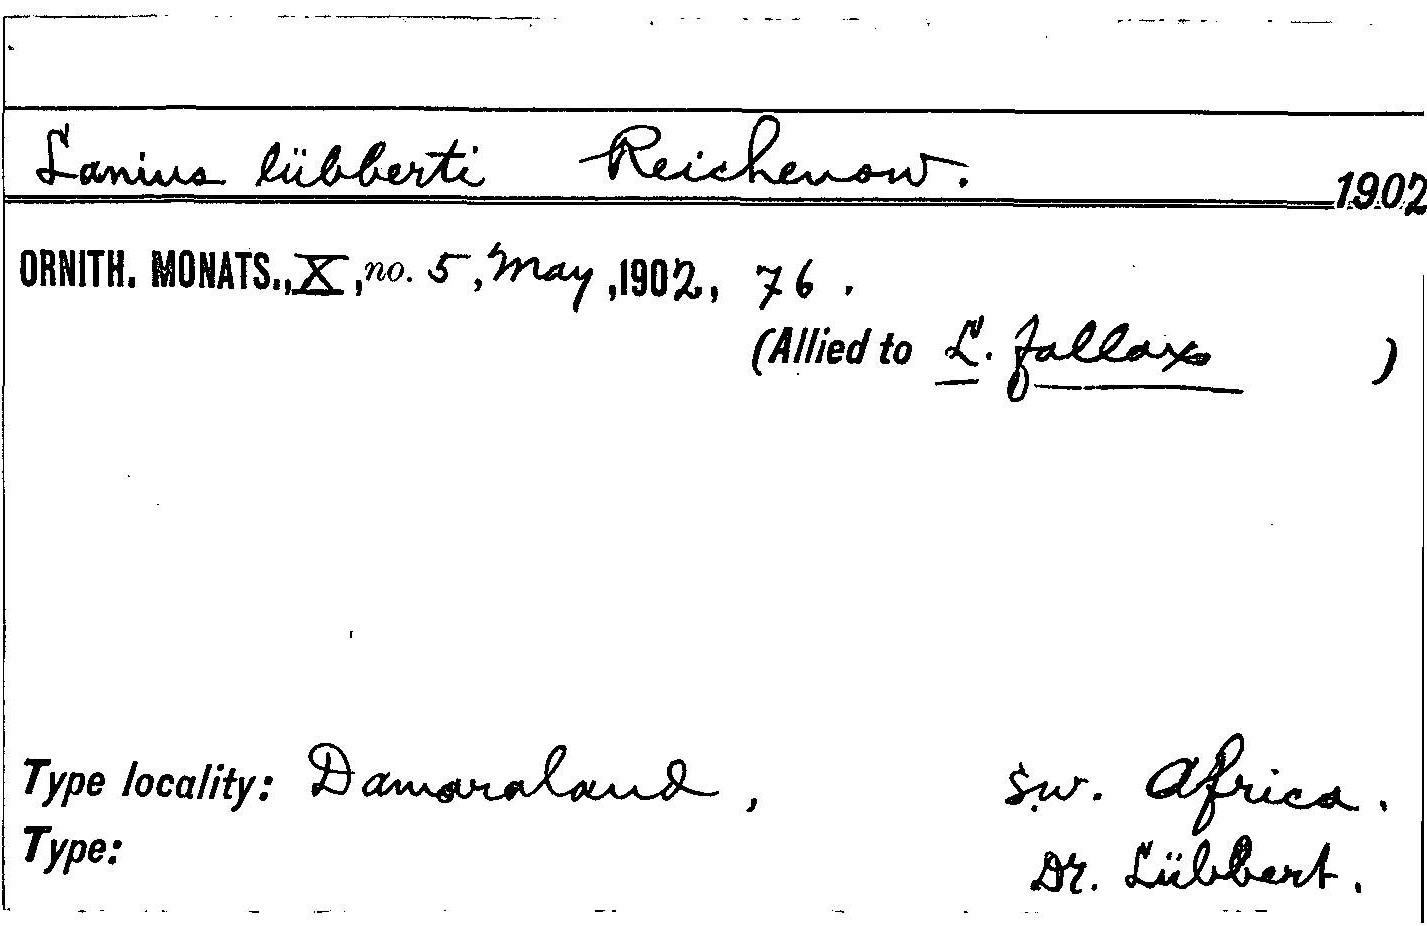 Lanius lübberti Reichenow. 1902
ORNITH. MONATS., X, no. 5, May, 1902, 76.
(Allied to L. fallax )
Type locality: Damaraland, S.W. Africa.
Type: Dr. Lübbert.